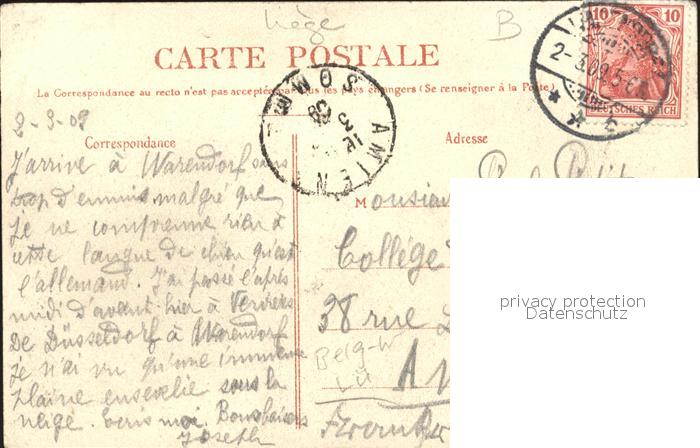 Liège
B
CARTE POSTALE
La Correspondance au recto n'est pas acceptée par tous les pays étrangers (Se renseigner à la Poste)
10 10
DEUTSCHES REICH
2-3.09.5-6
AMIENS
SOMME
2-3-09
Correspondance
Adresse
J'arrive à Warendorf sans
trop d'ennuis malgré que
je ne comprenne rien à
cette langue de chien qu'est
l'allemand. J'ai passé l'après
midi d'avant hier à Verviers
De Düsseldorf à Warendorf
je n'ai vu qu'une immense
plaine ensevelie sous la
neige. Ecris moi. Bons baisers
Joseph
Monsieur
Collège
38 rue
A
privacy protection
Datenschutz